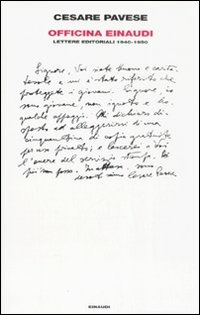 CESARE PAVESE
OFFICINA EINAUDI
LETTERE EDITORIALI 1940-1950
Signore, Voi siete buono e carita-
tevole e mi è stato riferito che
proteggete i giovani. Signore, io
sono giovane, non ignoto e ho
qualche appoggio. Mi dichiaro di-
sposto ad alleggerirvi di una
cinquantina di copie gratuite
e lascerei a voi
l'onere del servizio stampa. Di
più non posso. In attesa sono
Cesare Pavese
EINAUDI